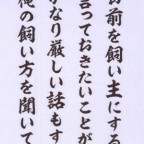 お前を飼い主にする
言っておきたいことが
かなり厳しい話もす
俺の飼い方を聞いて